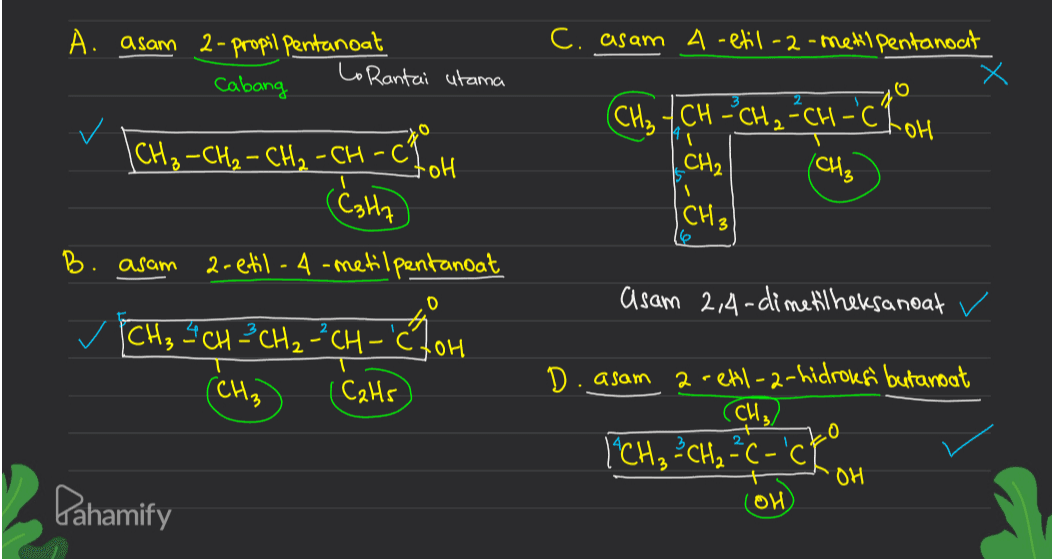 A. asam 2-propil pentanoat
Cabang ↳ Rantai utama
CH₃ – CH₂ – CH₂ – CH – C =O
OH
C₃H₇
B. asam 2-etil-4-metil pentanoat
5 4 3 2 1 O
CH₃ – CH – CH₂ – CH – C OH
CH₃ C₂H₅
C. asam 4-etil-2-metil pentanoat
3 2 1 O
CH₃ – CH – CH₂ – CH – C OH
4
CH₂ CH₃
5
CH₃
6
asam 2,4-dimetilheksanoat
D. asam 2-etil-2-hidroksi butanoat
CH₃
4 3 2 1 O
CH₃ – CH₂ – C – C
OH
OH
Pahamify